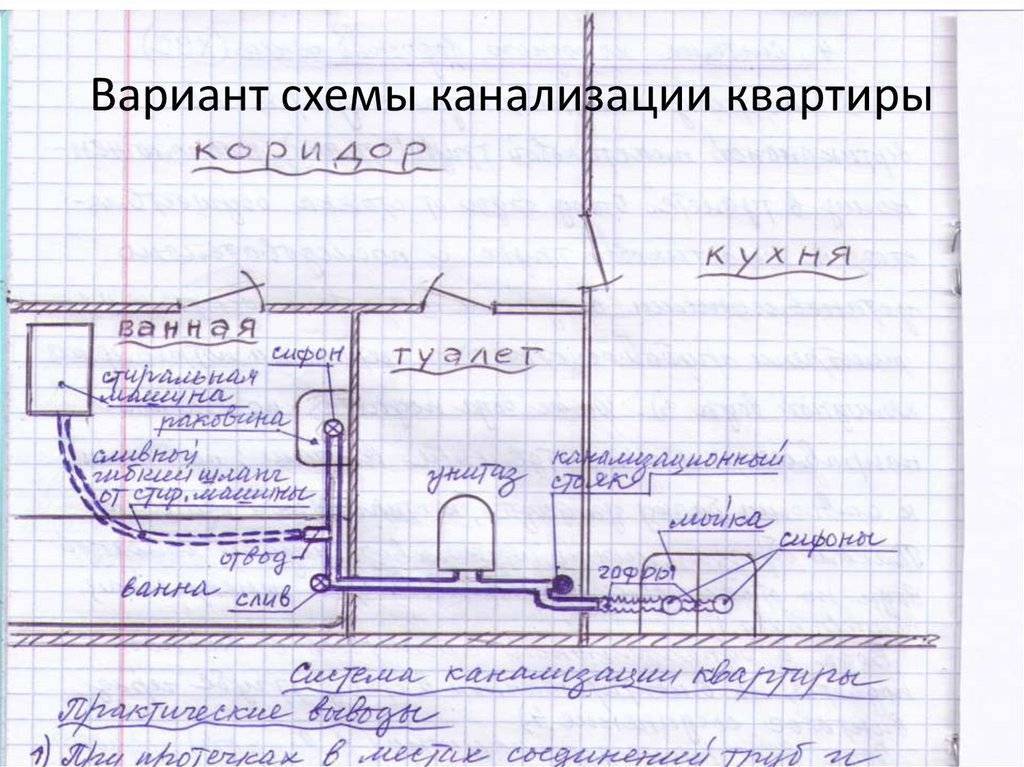 Вариант схемы канализации квартиры
коридор
кухня
ванная
сифон
туалет
стиральная
машина
раковина
сливной
гибкий шланг
от стир. машины
унитаз
канализационный
стояк
мойка
сифоны
отвод
гофры
ванна
слив
Система канализации квартиры
Практические выводы
1) При протечках в местах соединений труб и